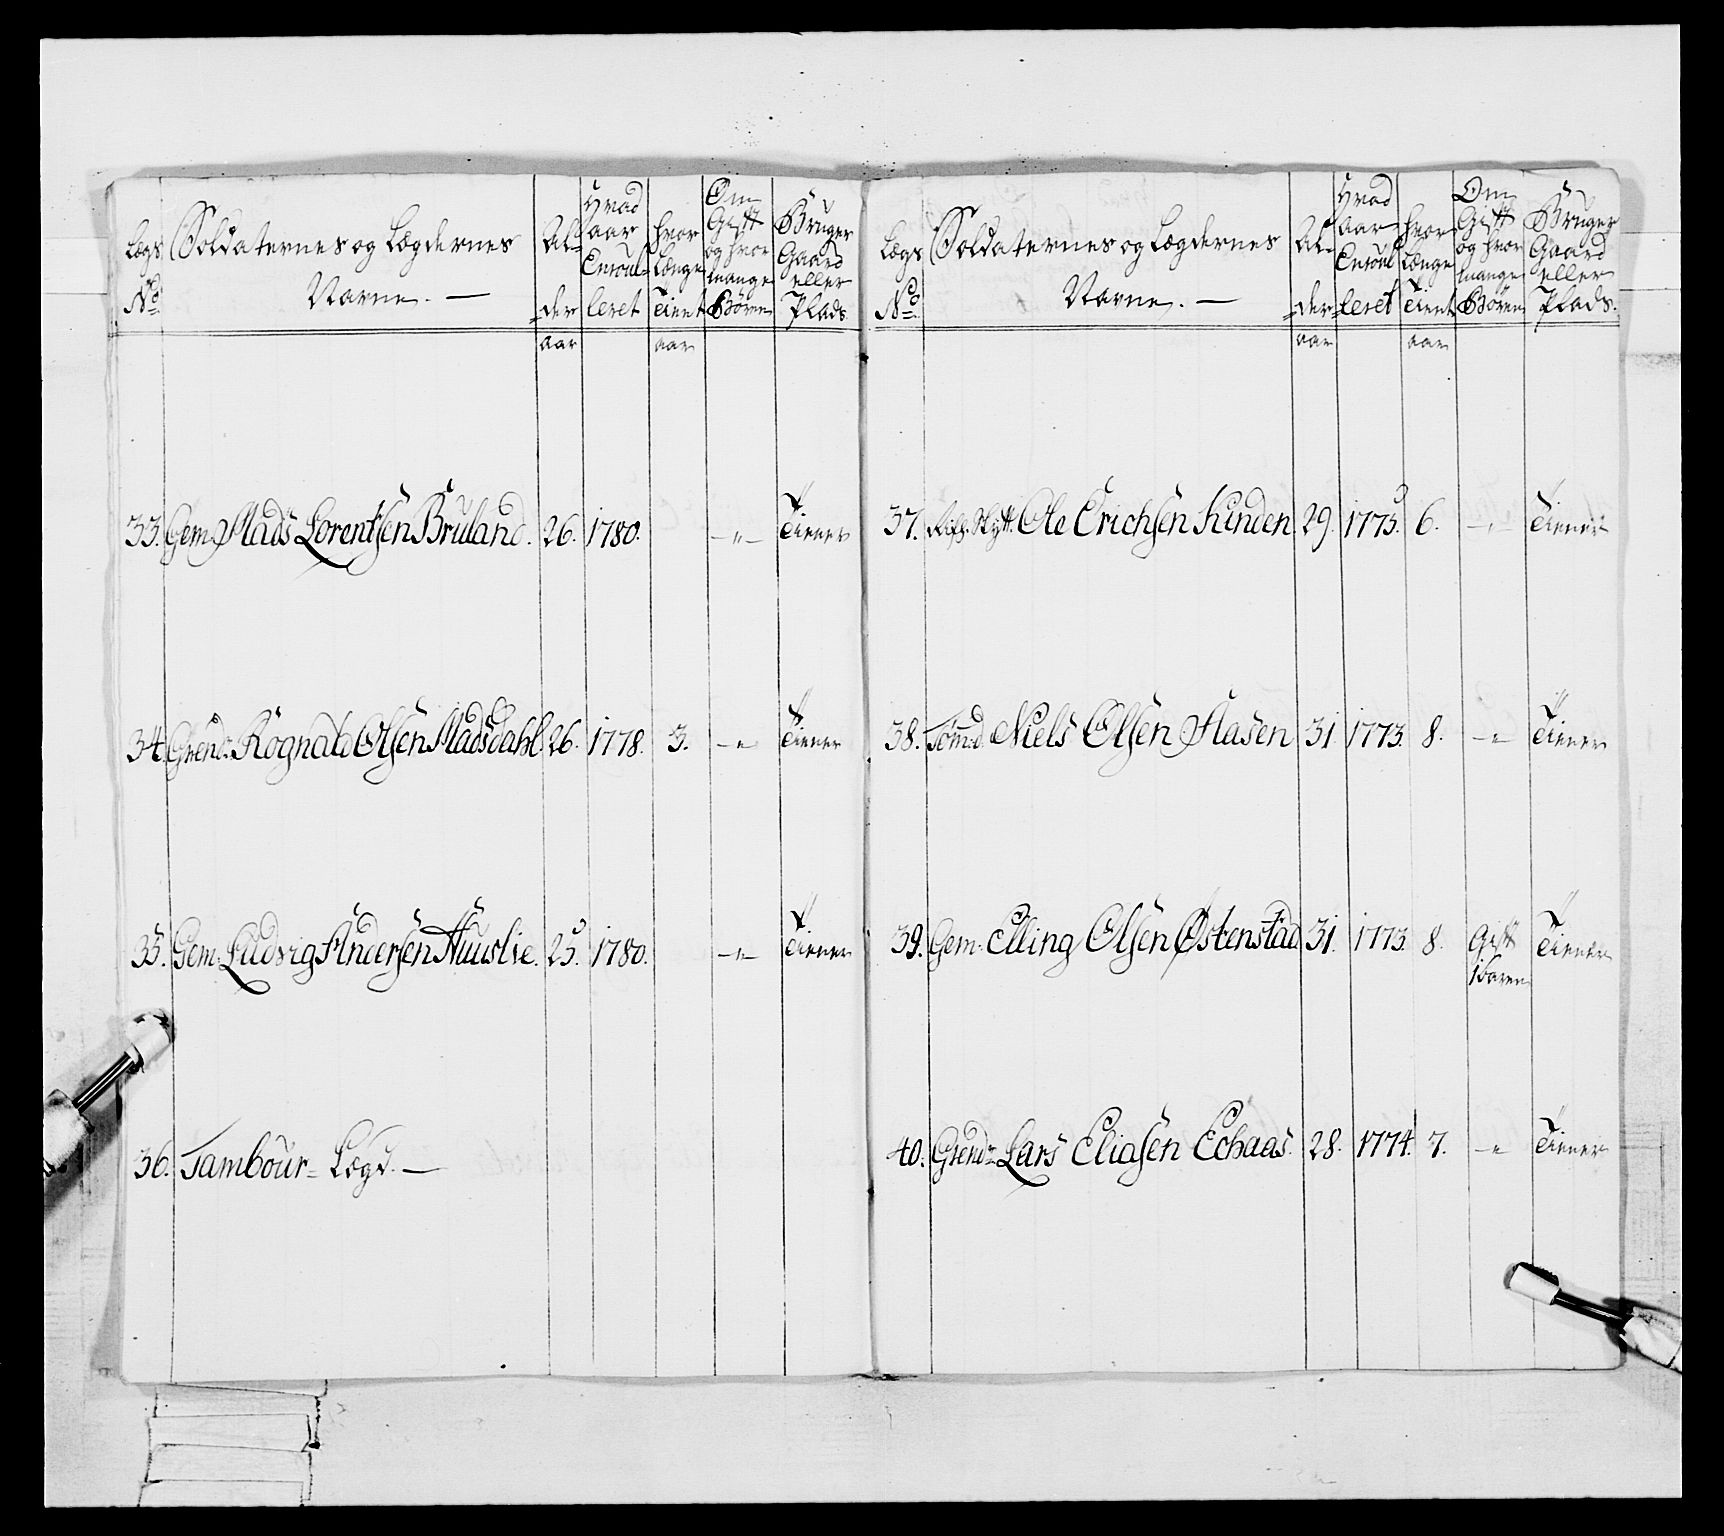 Lægs No Soldaternes og Lægdernes Navne. — Al-der Hvad Aar Enroulleret hvor Længe Tient Om Gift og hvor mange Børn Bruger Gaard eller Plads.
aar aar
33. Gem: Mads Lorentsen Bruland. 26. 1780. —"— Tiener
34. Grend: Rognald Olsen Madsdahl. 26. 1778. 3. —"— Tiener
35. Gem: Ludvig Andersen Huuslie. 25. 1780. —"— Tiener
36. Tambour-Lægd. —
Lægs No Soldaternes og Lægdernes Navne. — Al-der Hvad Aar Enroulleret hvor Længe Tient Om Gift og hvor mange Børn Bruger Gaard eller Plads.
aar aar
37. Ole Erichsen Hinden 29. 1775. 6. —"— Tiener
38. Tømd. Niels Olsen Aasen 31 1773. 8. —"— Tiener
39. Gem: Elling Olsen Østenstad 31. 1773. 8. Gift Tiener
40. Grendr Lars Eliasen Echaas. 28. 1774. 7. —"— Tiener